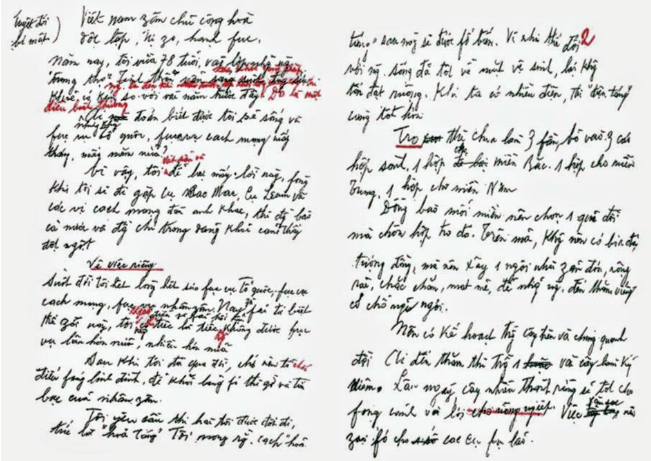 Tuyệt đối
bí mật
Việt nam zân chủ cộng hoà
độc lập, tự zo, hạnh fúc
Năm nay, tôi vừa 78 tuổi, vào lớp những người
trung thọ
khoẻ so với vài năm trước đây. Đó là một
điều bình thường
toàn biết được tôi sẽ sống và
fục vụ tổ quốc, fục vụ cách mạng mấy
tháng, mấy năm nữa?
Vì vậy, tôi để lại mấy lời này, fòng
khi tôi sẽ đi gặp cụ Mác, cụ Lênin và
các vị cách mạng đàn anh khác, thì đồng bào
cả nước và đồng chí trong đảng khỏi cảm thấy
đột ngột
Về việc riêng
Suốt đời tôi hết lòng hết sức fục vụ tổ quốc, fục vụ
cách mạng, fục vụ nhân zân. Nay fải từ biệt
thế giới này, tôi tiếc là tiếc không được fục
vụ lâu hơn nữa, nhiều hơn nữa
Sau khi tôi đã qua đời, chớ nên tổ chức
điếu fúng linh đình, để khỏi lãng fí thì giờ và tiền
bạc của nhân zân.
Tôi yêu cầu thi hài tôi được đốt đi,
tức là "hoả táng". Tôi mong rằng cách "hoả
2
táng" sau này sẽ được fổ biến. Vì như thế đối
với người sống đã tốt về mặt vệ sinh, lại không
tốn đất ruộng. Khi ta có nhiều điện, thì "điện táng"
càng tốt hơn
Tro thì chia làm 3 fần, bỏ vào 3 cái
hộp sành, 1 hộp cho miền Bắc. 1 hộp cho miền
Trung, 1 hộp cho miền Nam
Đồng bào mỗi miền nên chọn 1 quả đồi
mà chôn hộp tro đó. Trên mả, không nên có bia đá
tượng đồng, mà nên xây 1 ngôi nhà giản đơn, rộng
rãi, chắc chắn, mát mẻ, để những người đến thăm viếng
có chỗ nghỉ ngơi.
Nên có kế hoạch trồng cây trên và chung quanh
đồi. Ai đến thăm thì trồng 1 vài cây làm kỷ
niệm. Lâu ngày, cây nhiều thành rừng sẽ tốt cho
fong cảnh và lợi cho nông nghiệp. Việc
fó cho các cụ fụ lão.